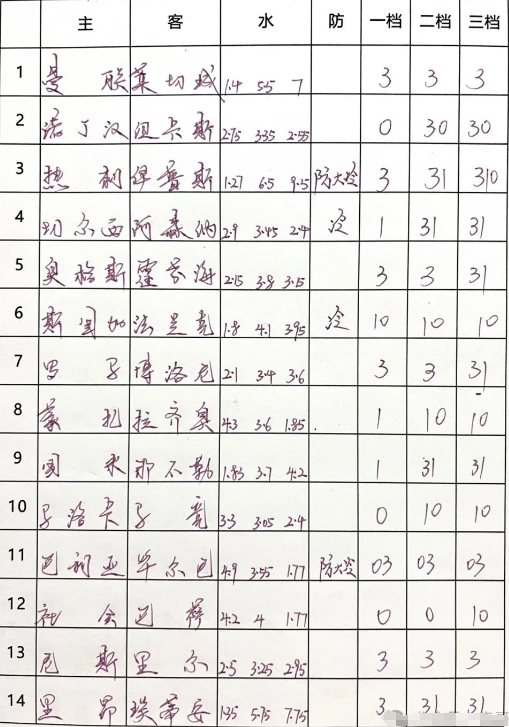 主 客 水 防 一档 二档 三档
1 曼联 莱切城 1.4 5.5 7 3 3 3
2 诺丁汉 纽卡斯 2.75 3.35 2.55 0 30 30
3 热刺 伊普斯 1.27 6.5 9.5 防大冷 3 31 310
4 切尔西 阿森纳 2.9 3.45 2.4 冷 1 31 31
5 奥格斯 霍芬海 2.15 3.8 3.15 3 3 31
6 斯图加 法兰克 1.8 4.1 3.95 冷 10 10 10
7 罗马 博洛尼 2.1 3.4 3.6 3 3 31
8 蒙扎 拉齐奥 4.3 3.6 1.85 1 10 10
9 国米 那不勒 1.83 3.7 4.2 1 31 31
10 马洛卡 马竞 3.3 3.05 2.4 0 10 10
11 巴利亚 毕尔巴 4.9 3.55 1.77 防大冷 03 03 03
12 社会 巴萨 4.2 4 1.77 0 0 10
13 尼斯 里尔 2.5 3.25 2.95 3 3 3
14 里昂 埃蒂安 1.35 5.75 7.75 3 31 31